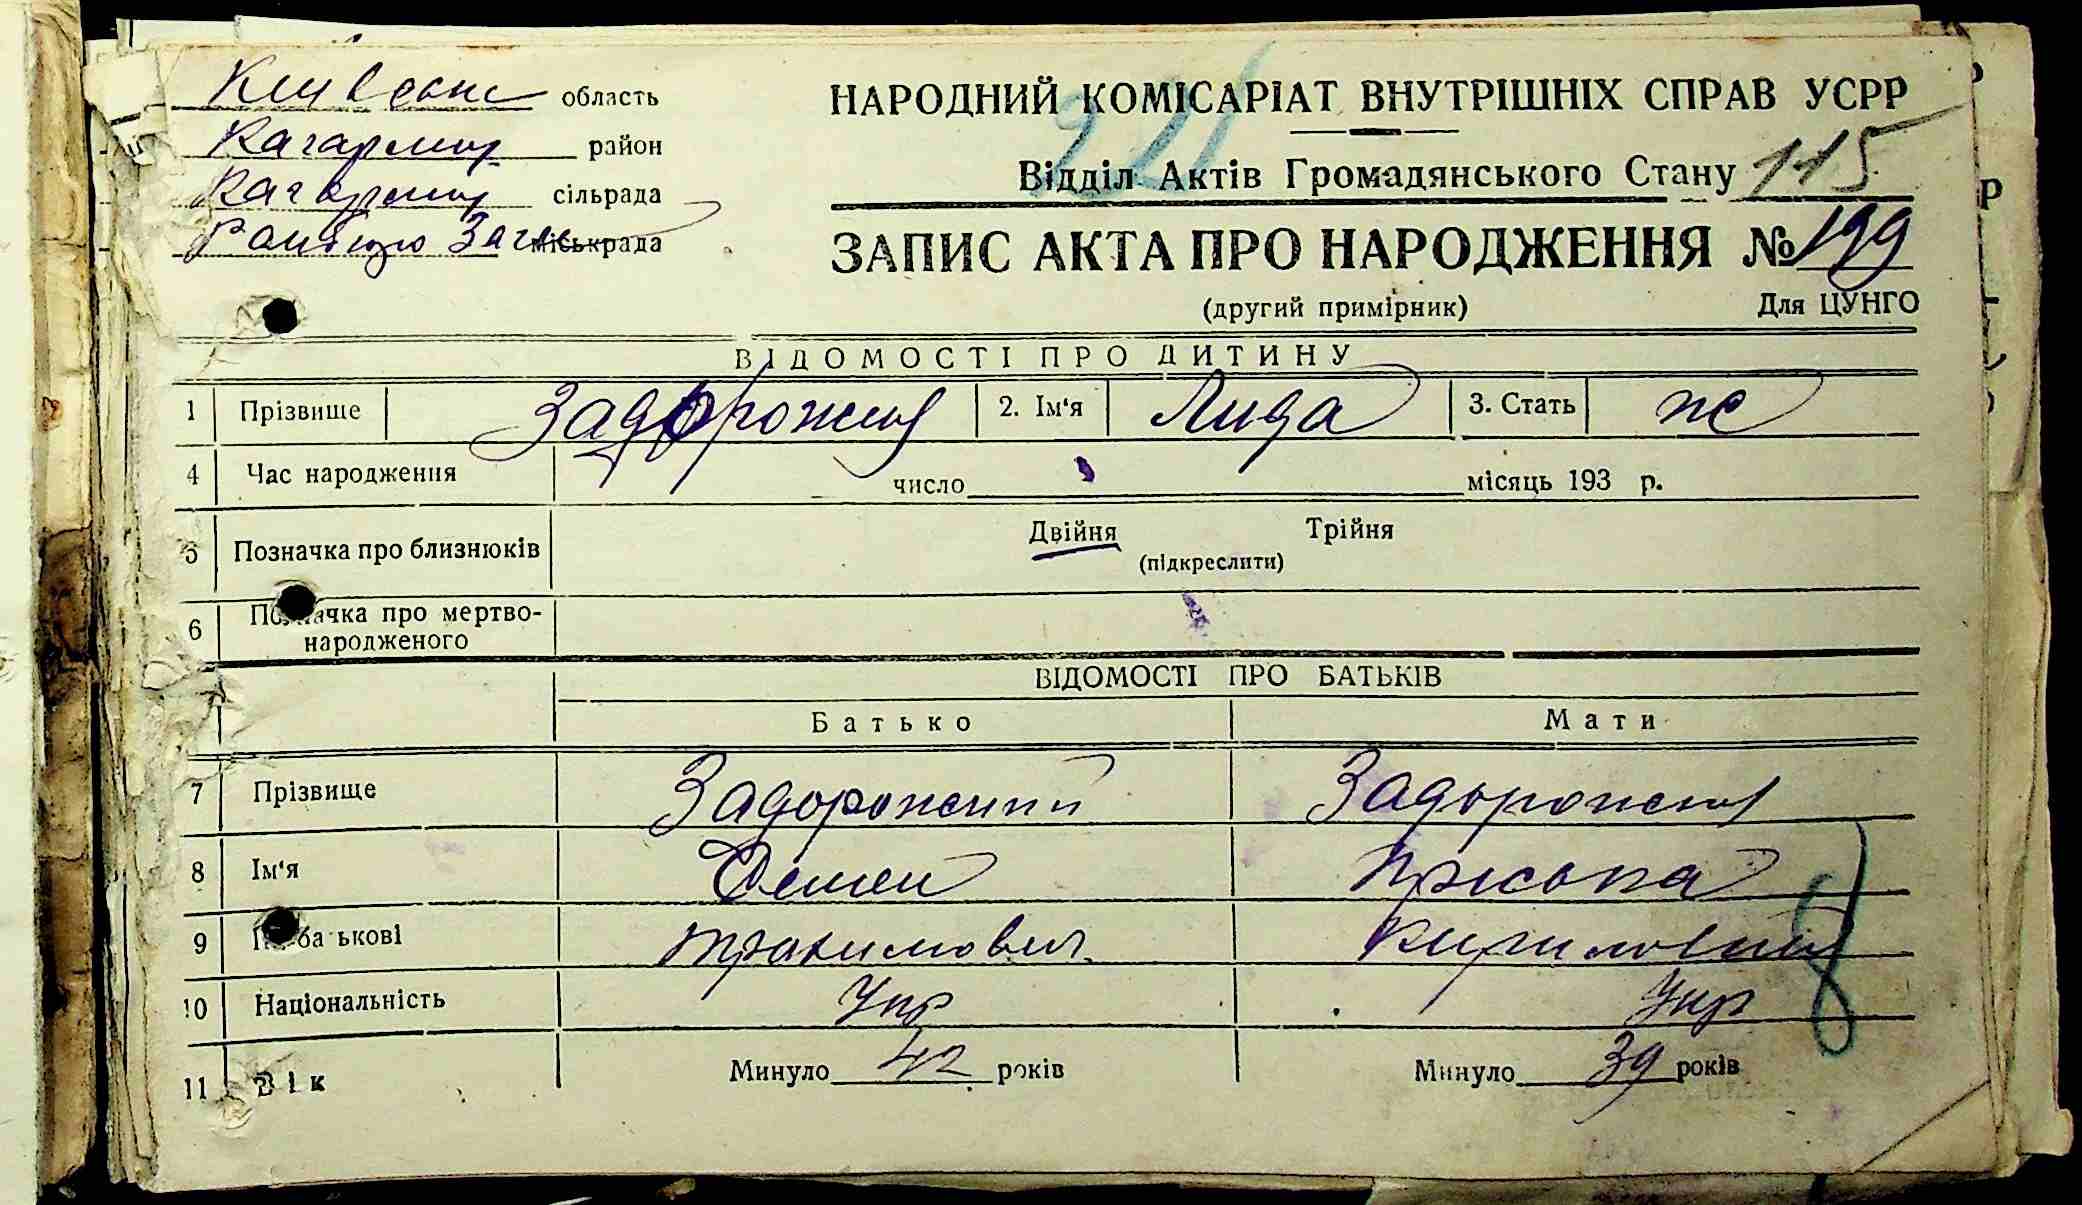 Київська область
Кагарлиц район
Кагарлиц сільрада
міськрада
НАРОДНИЙ КОМІСАРІАТ ВНУТРІШНІХ СПРАВ УСРР
221
Відділ Актів Громадянського Стану 115
ЗАПИС АКТА ПРО НАРОДЖЕННЯ № 199
(другий примірник) Для ЦУНГО
ВІДОМОСТІ ПРО ДИТИНУ
1 Прізвище Задорожня 2. Ім'я Лида 3. Стать ж
4 Час народження число місяць 193 р.
5 Позначка про близнюків Двійня Трійня
(підкреслити)
6 Позначка про мертво-
народженого
ВІДОМОСТІ ПРО БАТЬКІВ
Батько Мати
7 Прізвище Задорожний Задорожня
8 Ім'я Семен Пріська
9 По батькові Трохимович Кириловна
10 Національність Укр Укр
11 Вік Минуло 42 років Минуло 39 років